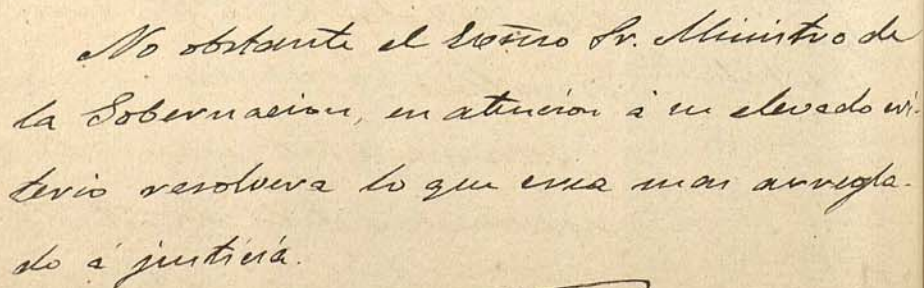 No obstante el Excmo Sr. Ministro de
la Gobernacion, en atencion á su elevado cri-
terio resolvera lo que crea mas arregla-
do á justicia.